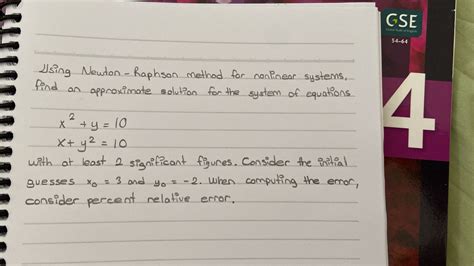 Using Newton-Raphson method for nonlinear systems,
find an approximate solution for the system of equations
x² + y = 10
x + y² = 10
with at least 2 significant figures. Consider the initial
guesses x₀ = 3 and y₀ = -2. When computing the error,
consider percent relative error.
GSE
54-64
4